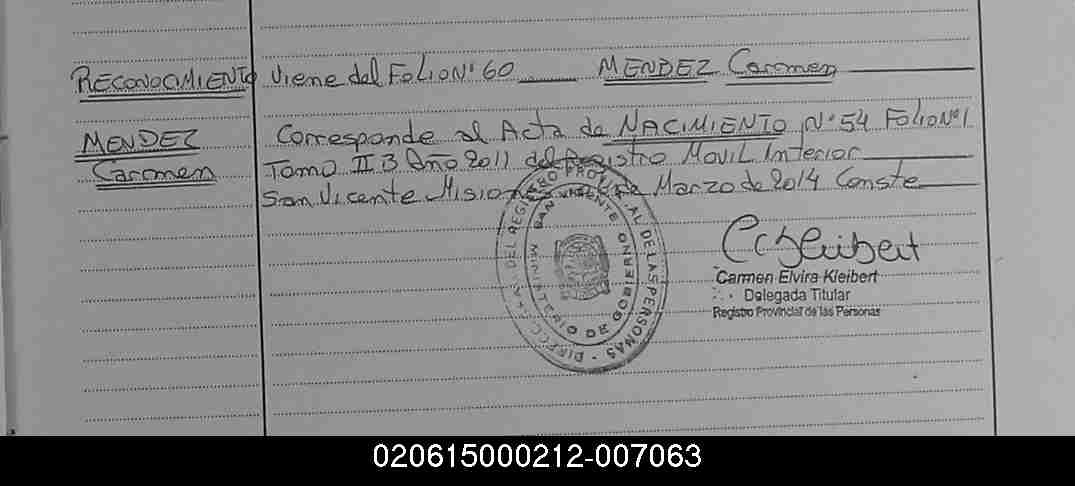 RECONOCIMIENTO Viene del Folio Nº 60 MENDEZ Carmen
MENDEZ Corresponde al Acta de NACIMIENTO Nº 54 Folio Nº 1
Carmen Tomo II B Año 2011 del Registro Movil Interior
San Vicente Misiones de Marzo de 2014 Conste
DEL REGISTRO PROVINCIAL DE LAS PERSONAS
SAN VICENTE
MINISTERIO DE GOBIERNO
Carmen Elvira Kleibert
Delegada Titular
Registro Provincial de las Personas
020615000212-007063